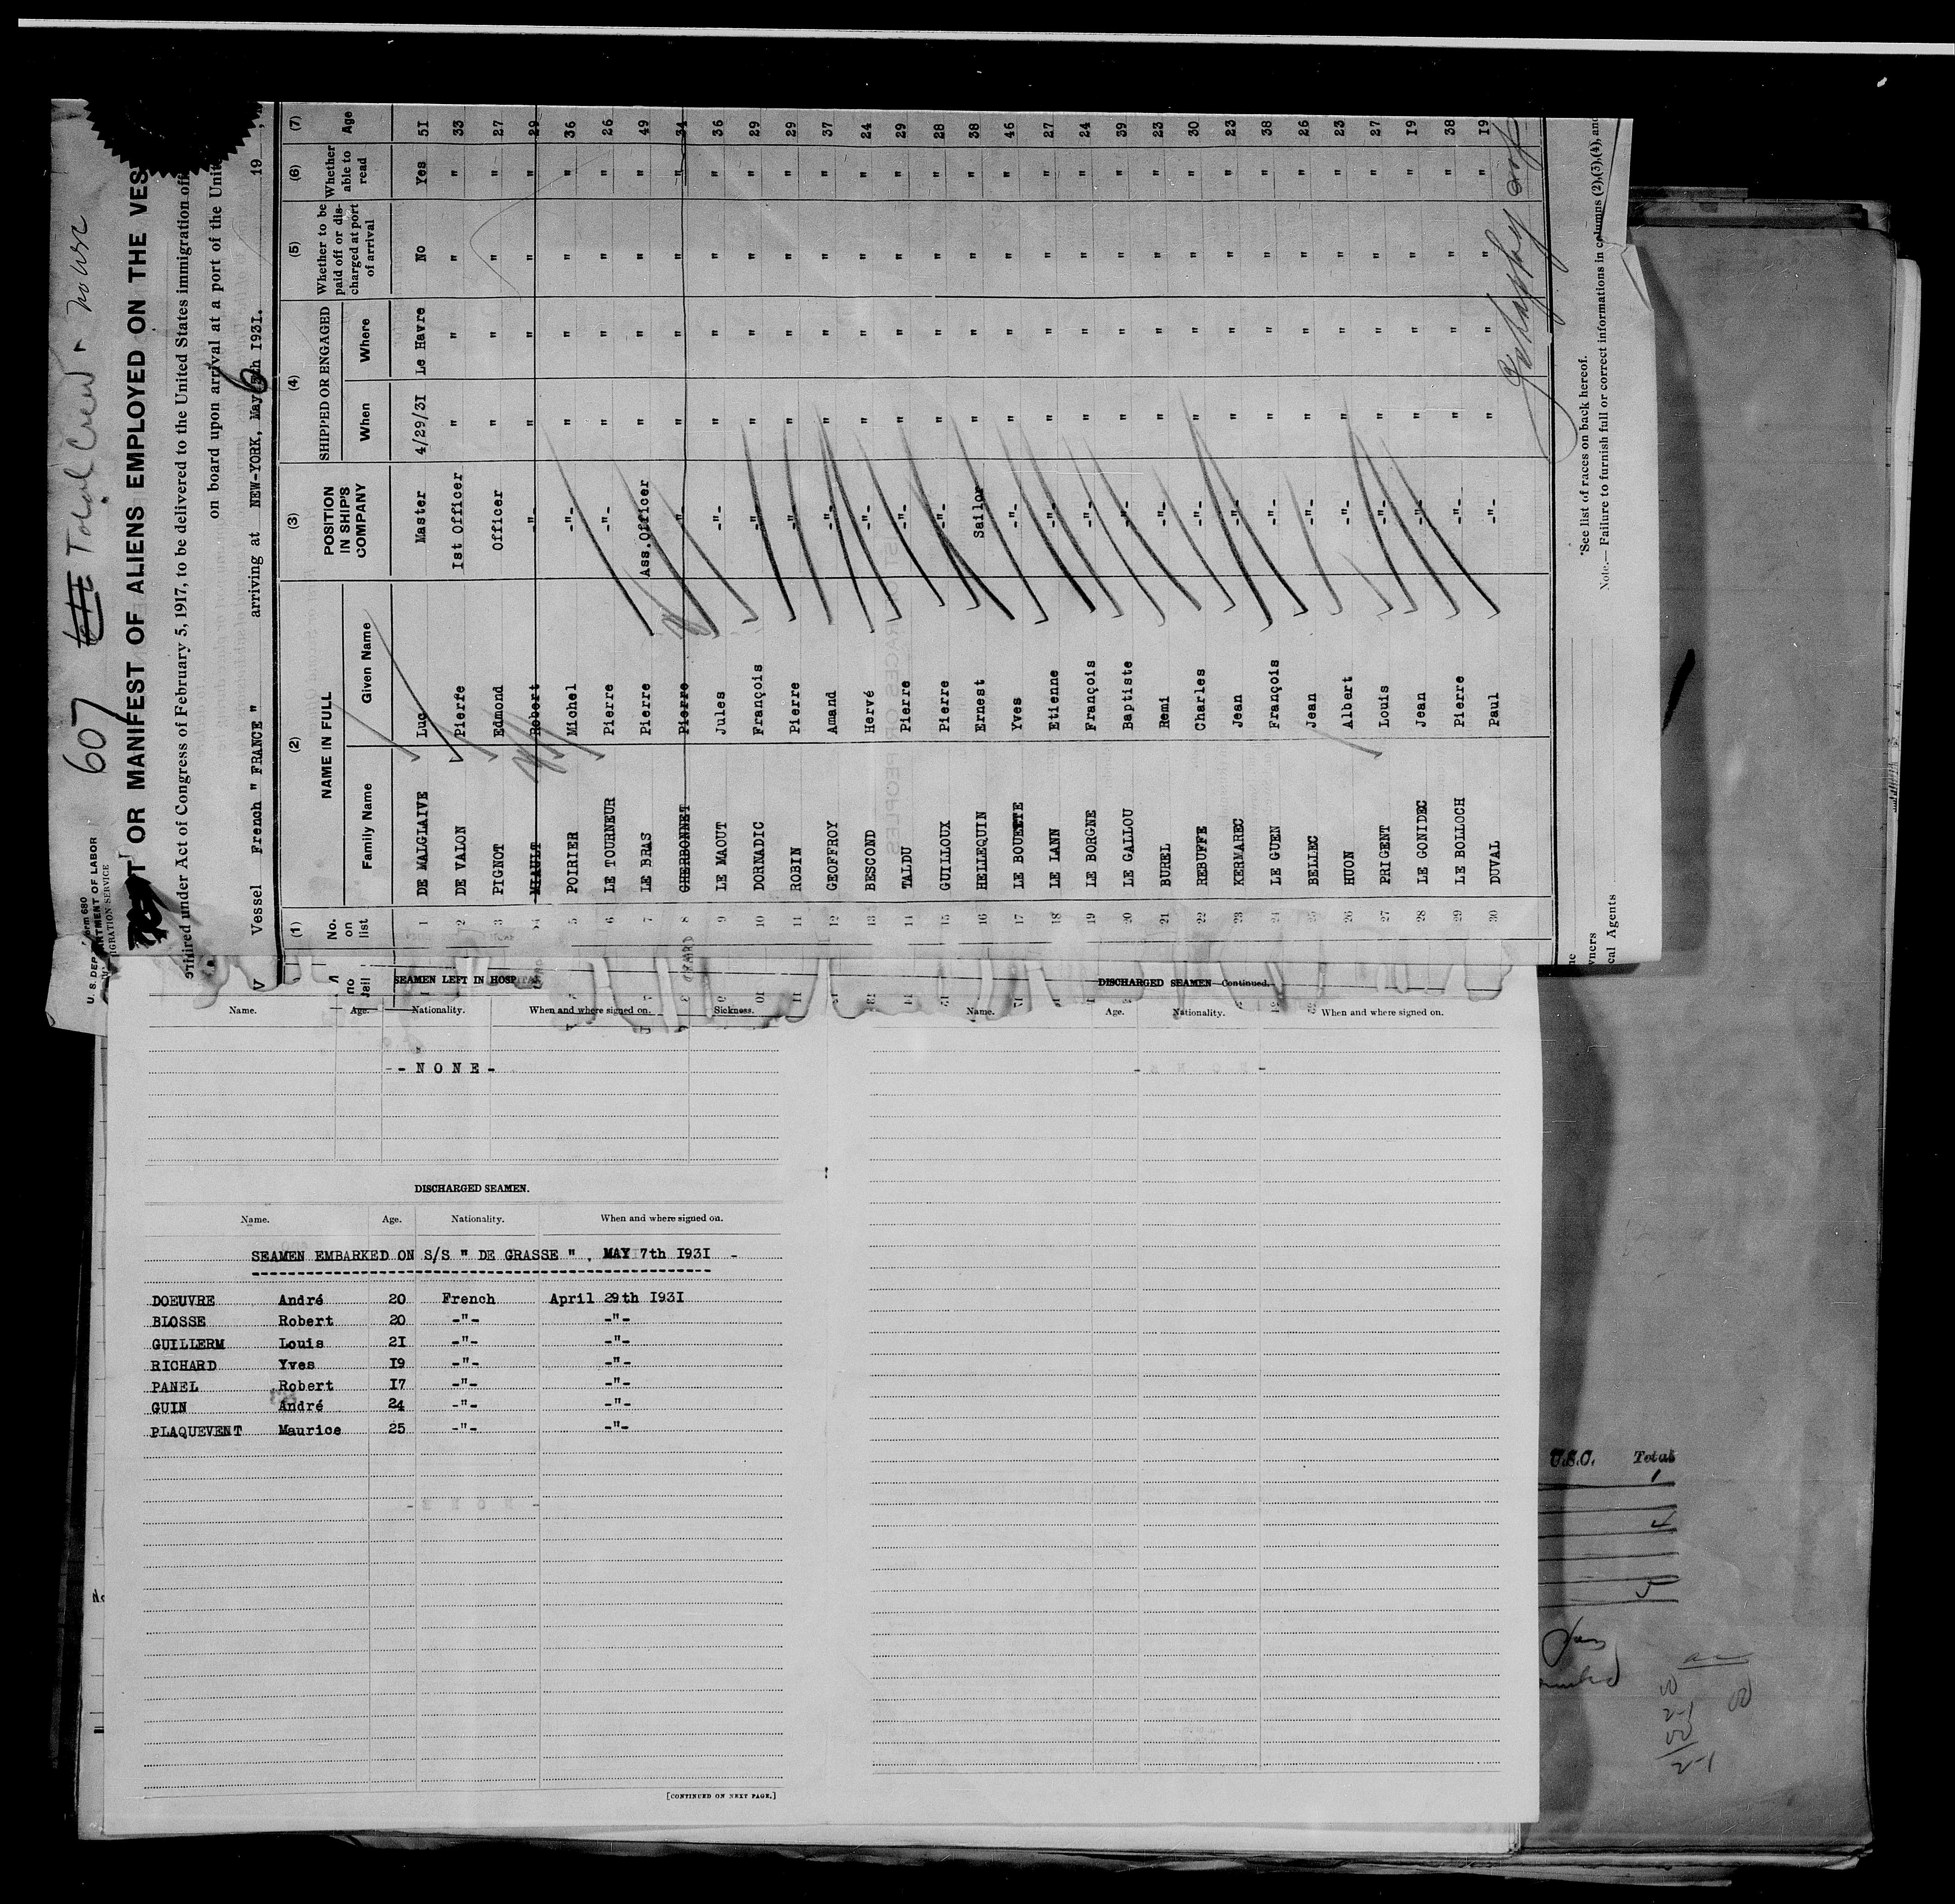 607 Total Crew - nowsc
U. S. DEPARTMENT OF LABOR
IMMIGRATION SERVICE
OR MANIFEST OF ALIENS EMPLOYED ON THE VES
under Act of Congress of February 5, 1917, to be delivered to the United States immigration
on board upon arrival at a port of the
Vessel French " FRANCE " arriving at NEW-YORK, May 6th 1931. 19
(1) (2) (3) (4) (5) (6) (7)
No. on list NAME IN FULL Family Name Given Name POSITION IN SHIP'S COMPANY SHIPPED OR ENGAGED When Where Whether to be paid off or discharged at port of arrival Whether able to read Age
1 DE MALGLAIVE Luc Master 4/29/31 Le Havre No Yes 51
2 DE VALON Pierre 1st Officer " " " " 33
3 PIGNOT Edmond Officer " " " " 27
4 MIAULT Robert -"- " " " " 29
5 POIRIER Michel -"- " " " " 36
6 LE TOURNEUR Pierre -"- " " " " 26
7 LE BRAS Pierre Ass.Officer " " " " 49
8 CHERBONNET Pierre " " " " " 34
9 LE MAOUT Jules -"- " " " " 36
10 DORNADIC François -"- " " " " 29
11 ROBIN Pierre -"- " " " " 29
12 GEOFFROY Amand -"- " " " " 37
13 BESCOND Hervé -"- " " " " 24
14 TALDU Pierre -"- " " " " 29
15 GUILLOUX Pierre -"- " " " " 28
16 HELLEQUIN Ernest Sailor " " " " 38
17 LE BOUETTE Yves -"- " " " " 46
18 LE LANN Etienne -"- " " " " 27
19 LE BORGNE François -"- " " " " 24
20 LE GALLOU Baptiste -"- " " " " 39
21 BUREL Remi -"- " " " " 23
22 REBUFFE Charles -"- " " " " 30
23 KERMAREC Jean -"- " " " " 23
24 LE GUEN François -"- " " " " 38
25 BELLEC Jean -"- " " " " 26
26 HUON Albert -"- " " " " 23
27 PRIGENT Louis -"- " " " " 27
28 LE GONIDEC Jean -"- " " " " 19
29 LE BOLLOCH Pierre -"- " " " " 38
30 DUVAL Paul -"- " " " " 19
*See list of races on back hereof.
Note.— Failure to furnish full or correct informations in columns (2),(3),(4), and
cal Agents
SEAMEN LEFT IN HOSPITAL
Name. Age. Nationality. When and where signed on. Sickness.
-- N O N E -
DISCHARGED SEAMEN—Continued.
Name. Age. Nationality. When and where signed on.
DISCHARGED SEAMEN.
Name. Age. Nationality. When and where signed on.
SEAMEN EMBARKED ON S/S " DE GRASSE " . MAY 7th 1931 -
DOEUVRE André 20 French April 29th 1931
BLOSSE Robert 20 -"- -"-
GUILLERM Louis 21 -"- -"-
RICHARD Yves 19 -"- -"-
PANEL Robert 17 -"- -"-
GUIN André 24 -"- -"-
PLAQUEVENT Maurice 25 -"- -"-
[CONTINUED ON NEXT PAGE.]
U.S.C. Total